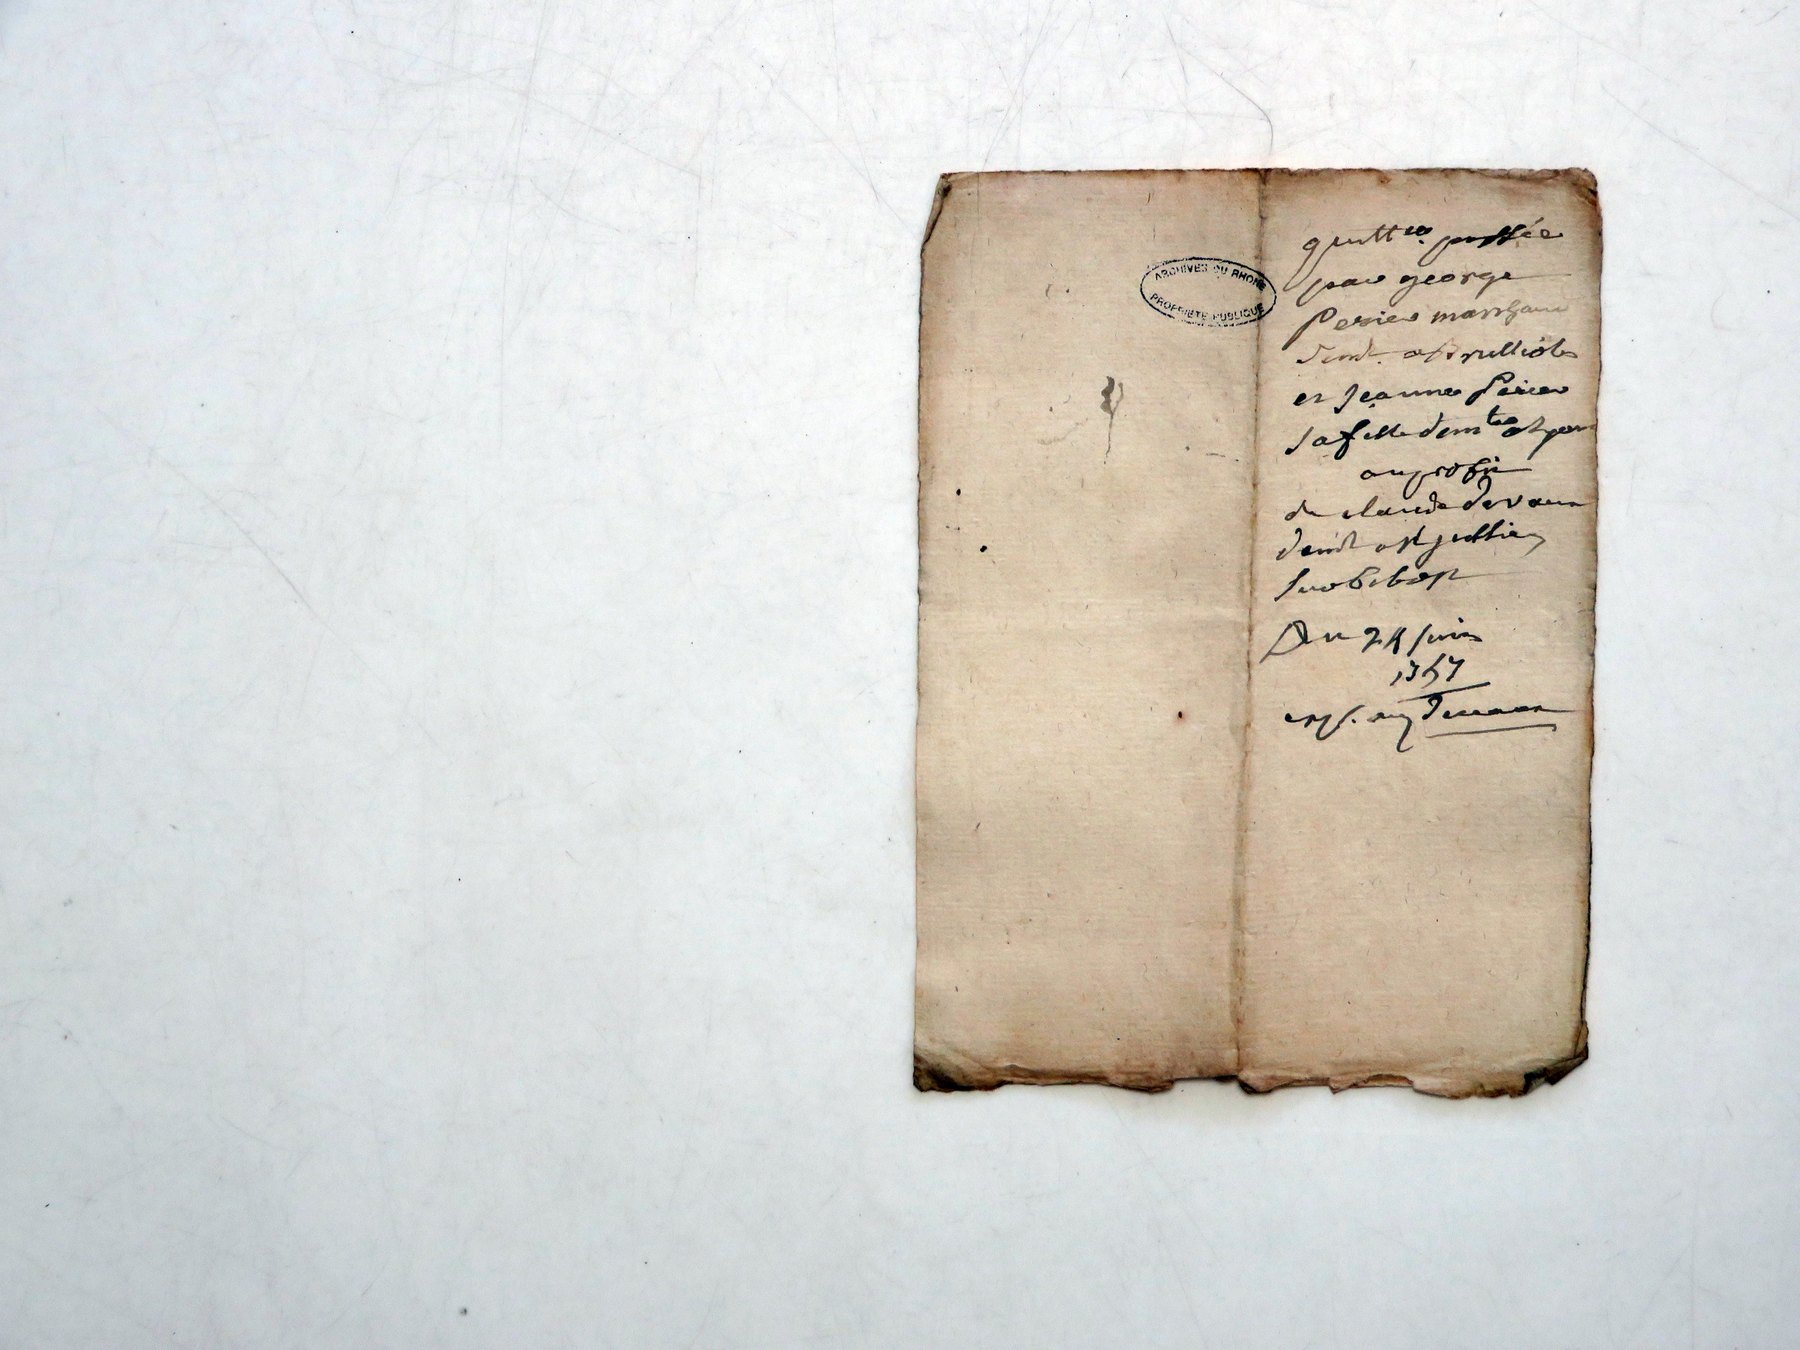 ARCHIVES DU RHONE
PROPRIÉTÉ PUBLIQUE
quittce. passée
par george
Perier marchand
demt. a Brullioles
et Jeanne Perier
sa fille demte
au profit
de claude devaux
demt a st jullien
sur bibost
Du 24 juin
1767
exp. aud devaux